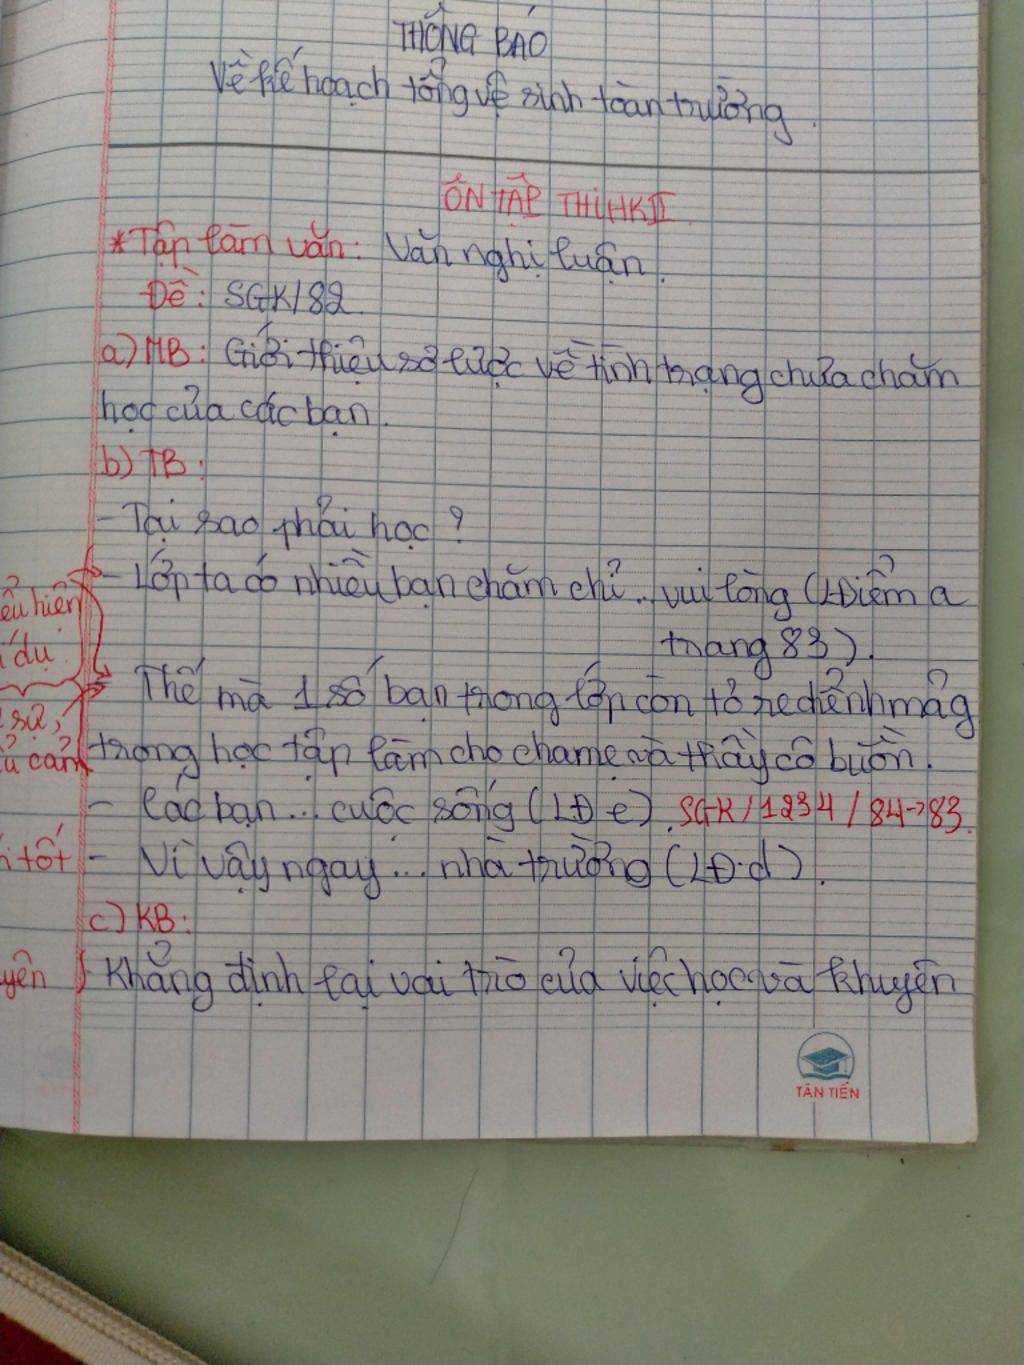 THÔNG BÁO
Về kế hoạch tổng vệ sinh toàn trường.
ÔN TẬP THI HKII
*Tập làm văn: Văn nghị luận.
Đề: SGK/82.
a) MB: Giới thiệu sơ lược về tình trạng chưa chăm
học của các bạn.
b) TB:
- Tại sao phải học?
- Lớp ta có nhiều bạn chăm chỉ... vui lòng (LĐiểm a
trang 83).
- Thế mà 1 số bạn trong lớp còn tỏ
trong học tập làm cho cha mẹ và thầy cô buồn.
- Các bạn... cuộc sống (LĐ e). SGK/1234/84->83.
- Vì vậy ngay... nhà trường (LĐ.d).
c) KB:
Khẳng định lại vai trò của việc học và khuyên
hiện
dụ
sự,
cảm
tốt
TÂN TIẾN